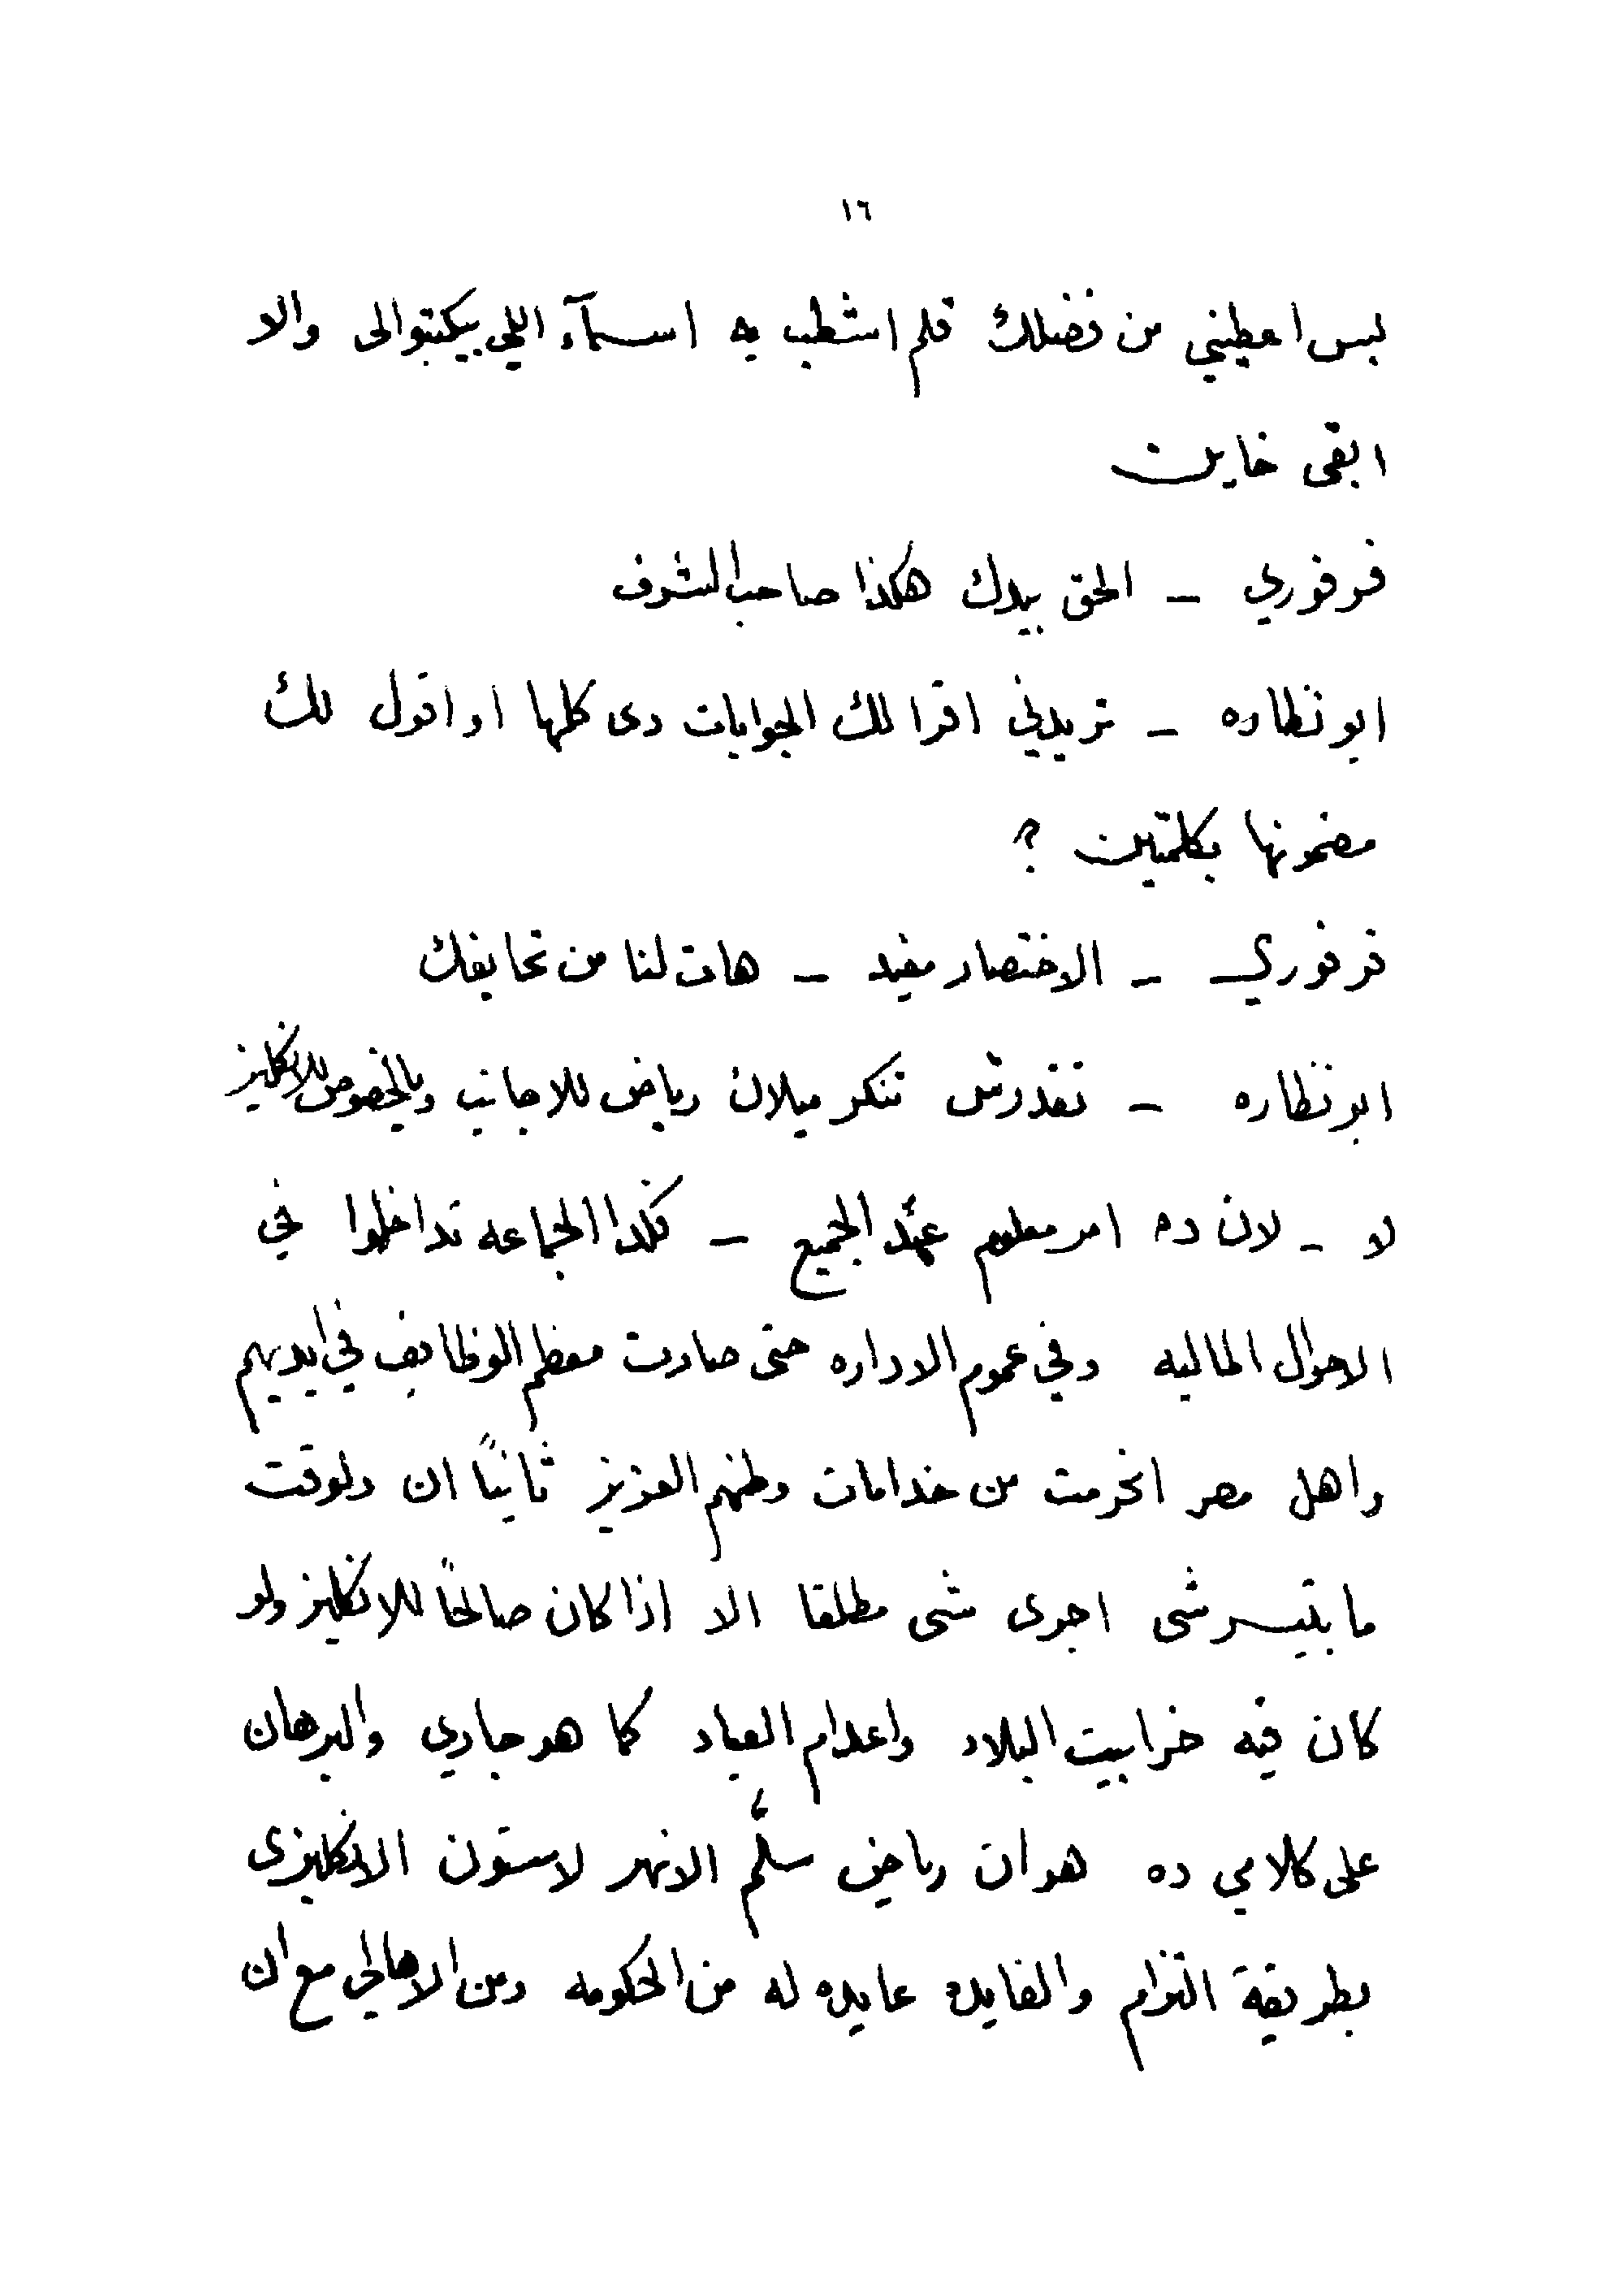 ١٦
بس اعطيني من فضلك قلم اشطب به اسمآء اللي بيكتبوالى والا
ابقى خاين
فرفوري – الحق بيدك هكذا صاحب الشرف
ابو نظاره – تريدني اقرا لك الجوابات دى كلها او اقول لك
مضمونها بكلمتين ؟
فرفوري – الاختصار مفيد – هات لنا من تحايفك
ابو نظاره – تقدرش تنكر ميلان رياض للاجانب وبالخصوص للانكليز
لا – لان ده امر معلوم عند الجميع – فلذا الجماعه تداخلوا في
الاحوال الماليه وفي عموم الاداره حتى صارت معظم الوظايف في ايديهم
واهل مصر انحرمت من خدامات وطنهم العزيز ثانيًا ان دلوقت
ما بتيسرشى اجرى شى مطلقا الا اذا كان صالحًا للانكليز ولو
كان فيه خرابيت البلاد واعدام العباد كما هو جاري والبرهان
على كلامي ده هو ان رياض سلّم الانهر لاستون الانكليزى
بطريقة التزام والفايده عايده له من الحكومه ومن الاهالي مع ان